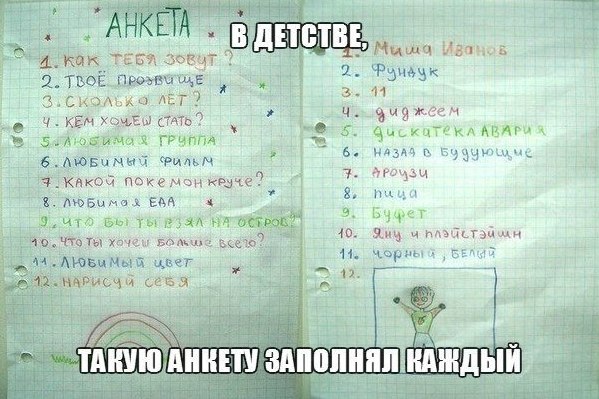 В ДЕТСТВЕ,
АНКЕТА
1. КАК ТЕБЯ ЗОВУТ?
2. ТВОЁ ПРОЗВИЩЕ
3. СКОЛЬКО ЛЕТ?
4. КЕМ ХОЧЕШ СТАТЬ?
5. ЛЮБИМАЯ ГРУППА
6. ЛЮБИМЫЙ ФИЛЬМ
7. КАКОЙ ПОКЕМОН КРУЧЕ?
8. ЛЮБИМАЯ ЕДА
9. ЧТО БЫ ТЫ ВЗЯЛ НА ОСТРОВ?
10. ЧТО ТЫ ХОЧЕШ БОЛЬШЕ ВСЕГО?
11. ЛЮБИМЫЙ ЦВЕТ
12. НАРИСУЙ СЕБЯ
1. Миша Иванов
2. Фундук
3. 11
4. диджеем
5. дискатека АВАРИЯ
6. НАЗАД в будующие
7. Дроузи
8. пица
9. Буфет
10. Яну и плэйстэйшн
11. чорный, БЕЛЫЙ
12.
ТАКУЮ АНКЕТУ ЗАПОЛНЯЛ КАЖДЫЙ